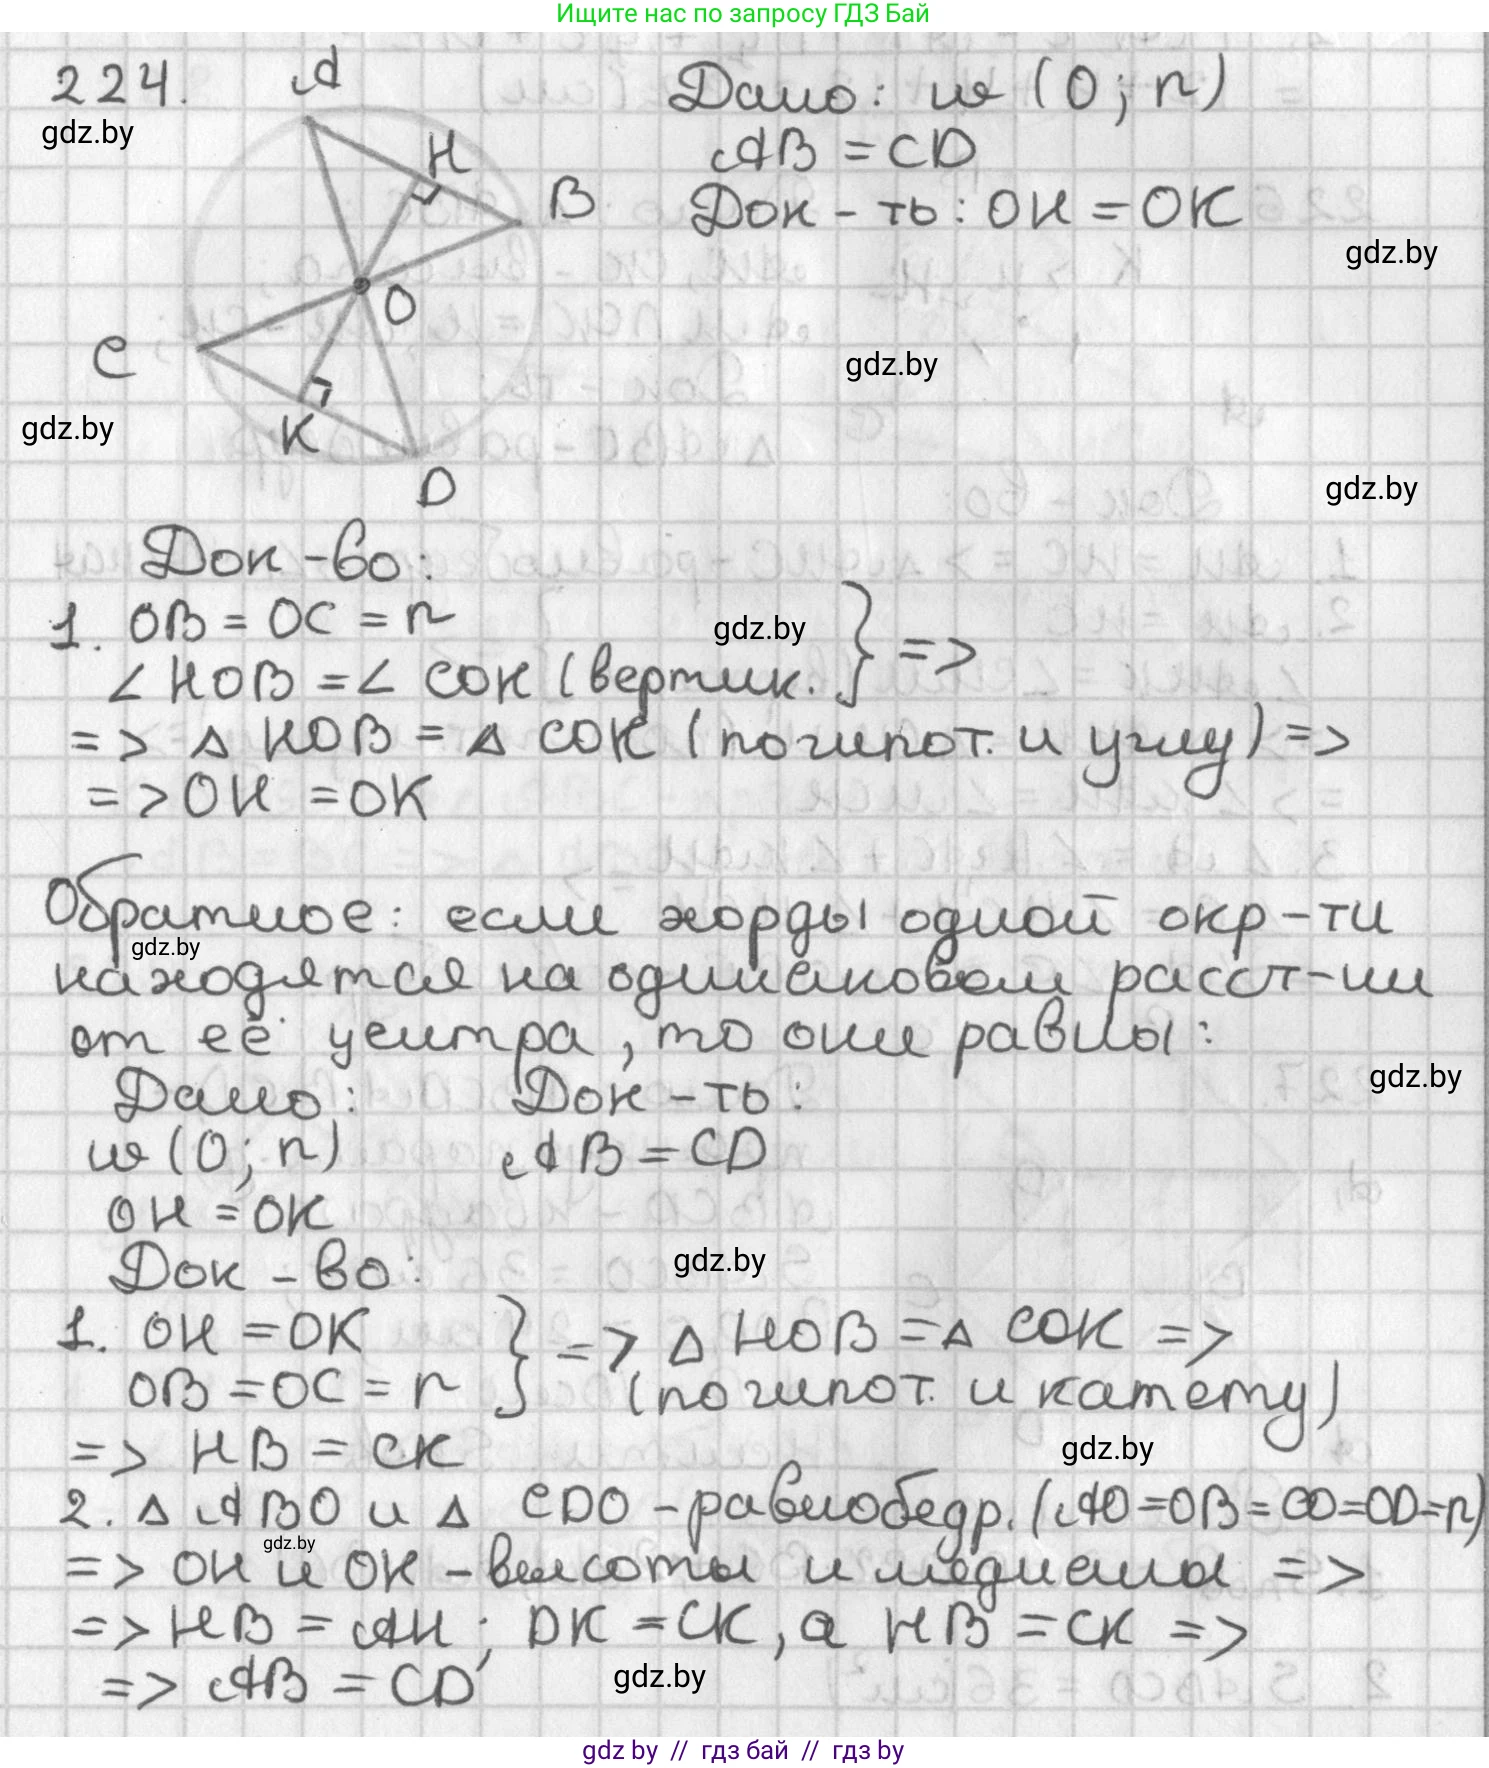 Ищите нас по запросу ГДЗ Бай
224.
A
Дано: w (O; r)
gdz.by
H
AB = CD
B
Док-ть: OH = OK
gdz.by
O
C
gdz.by
gdz.by
K
D
gdz.by
Док-во:
1. OB = OC = r
gdz.by
∠ HOB = ∠ COK (вертик. } =>
=> △ HOB = △ COK (по гипот. и углу) =>
=> OH = OK
Обратное: если хорды одной окр-ти
gdz.by
находятся на одинаковом расст-нии
от её центра, то они равны:
gdz.by
Дано: Док-ть:
w (O; r) AB = CD
OH = OK
Док-во:
gdz.by
1. OH = OK } => △ HOB = △ COK =>
OB = OC = r (по гипот. и катету)
=> HB = CK
gdz.by
2. △ ABO и △ CDO - равнобедр. (AO = OB = CO = OD = r)
gdz.by
=> OH и OK - высоты и медианы =>
=> HB = AH; DK = CK, а HB = CK =>
=> AB = CD
gdz.by
gdz by // гдз бай // гдз by